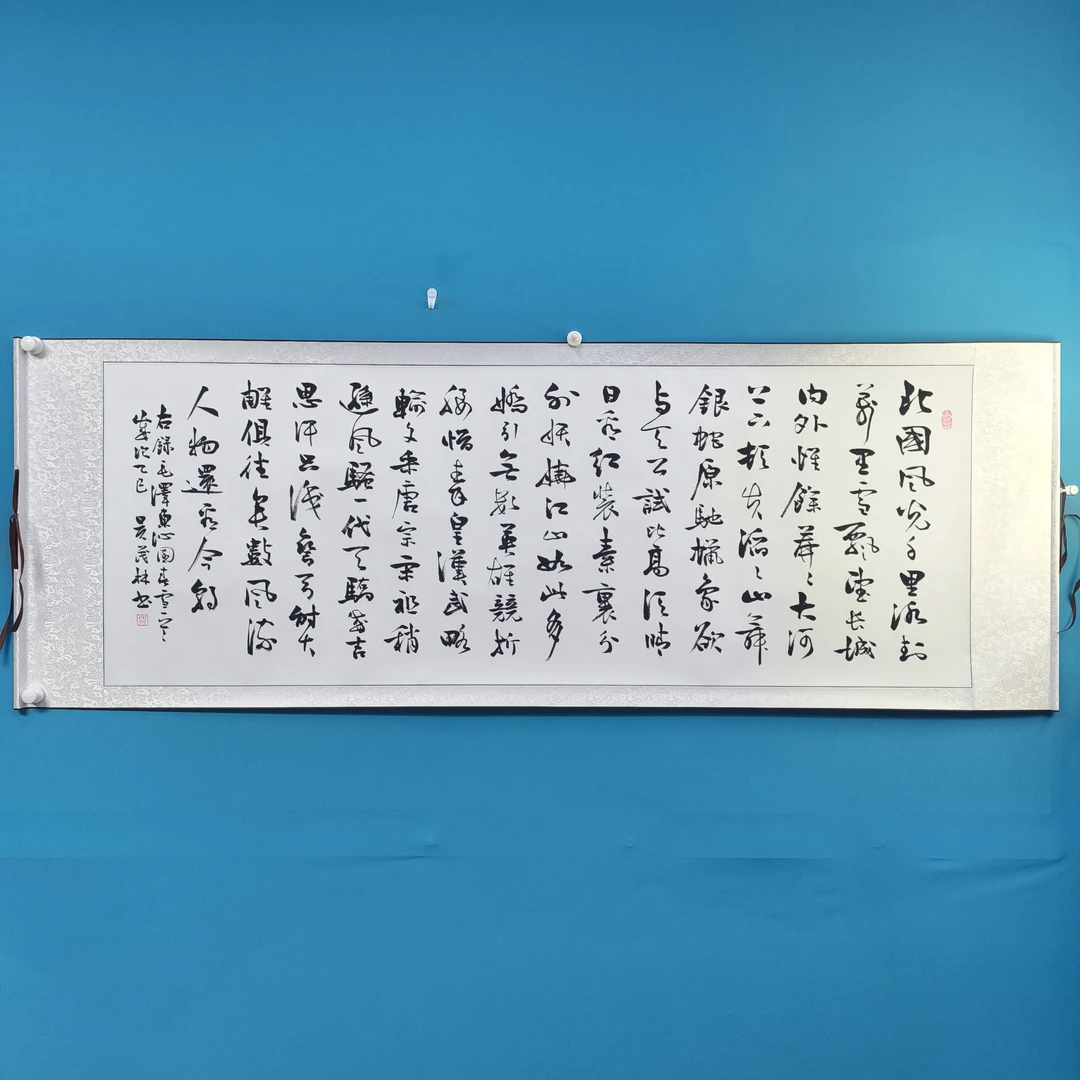 北國風光千里冰封
萬里雪飄望长城
内外惟餘莽〻大河
上下頓失滔〻山舞
銀蛇原馳蠟象欲
与天公試比高须晴
日看红装素裹分
外妖嬈江山如此多
嬌引無數英雄競折
腰惜秦皇漢武略
輸文采唐宗宋祖稍
遜風騷一代天驕成吉
思汗只識彎弓射大
雕俱往矣數風流
人物還看今朝
右錄毛澤東沁園春雪
歲次乙巳 吴茂林书